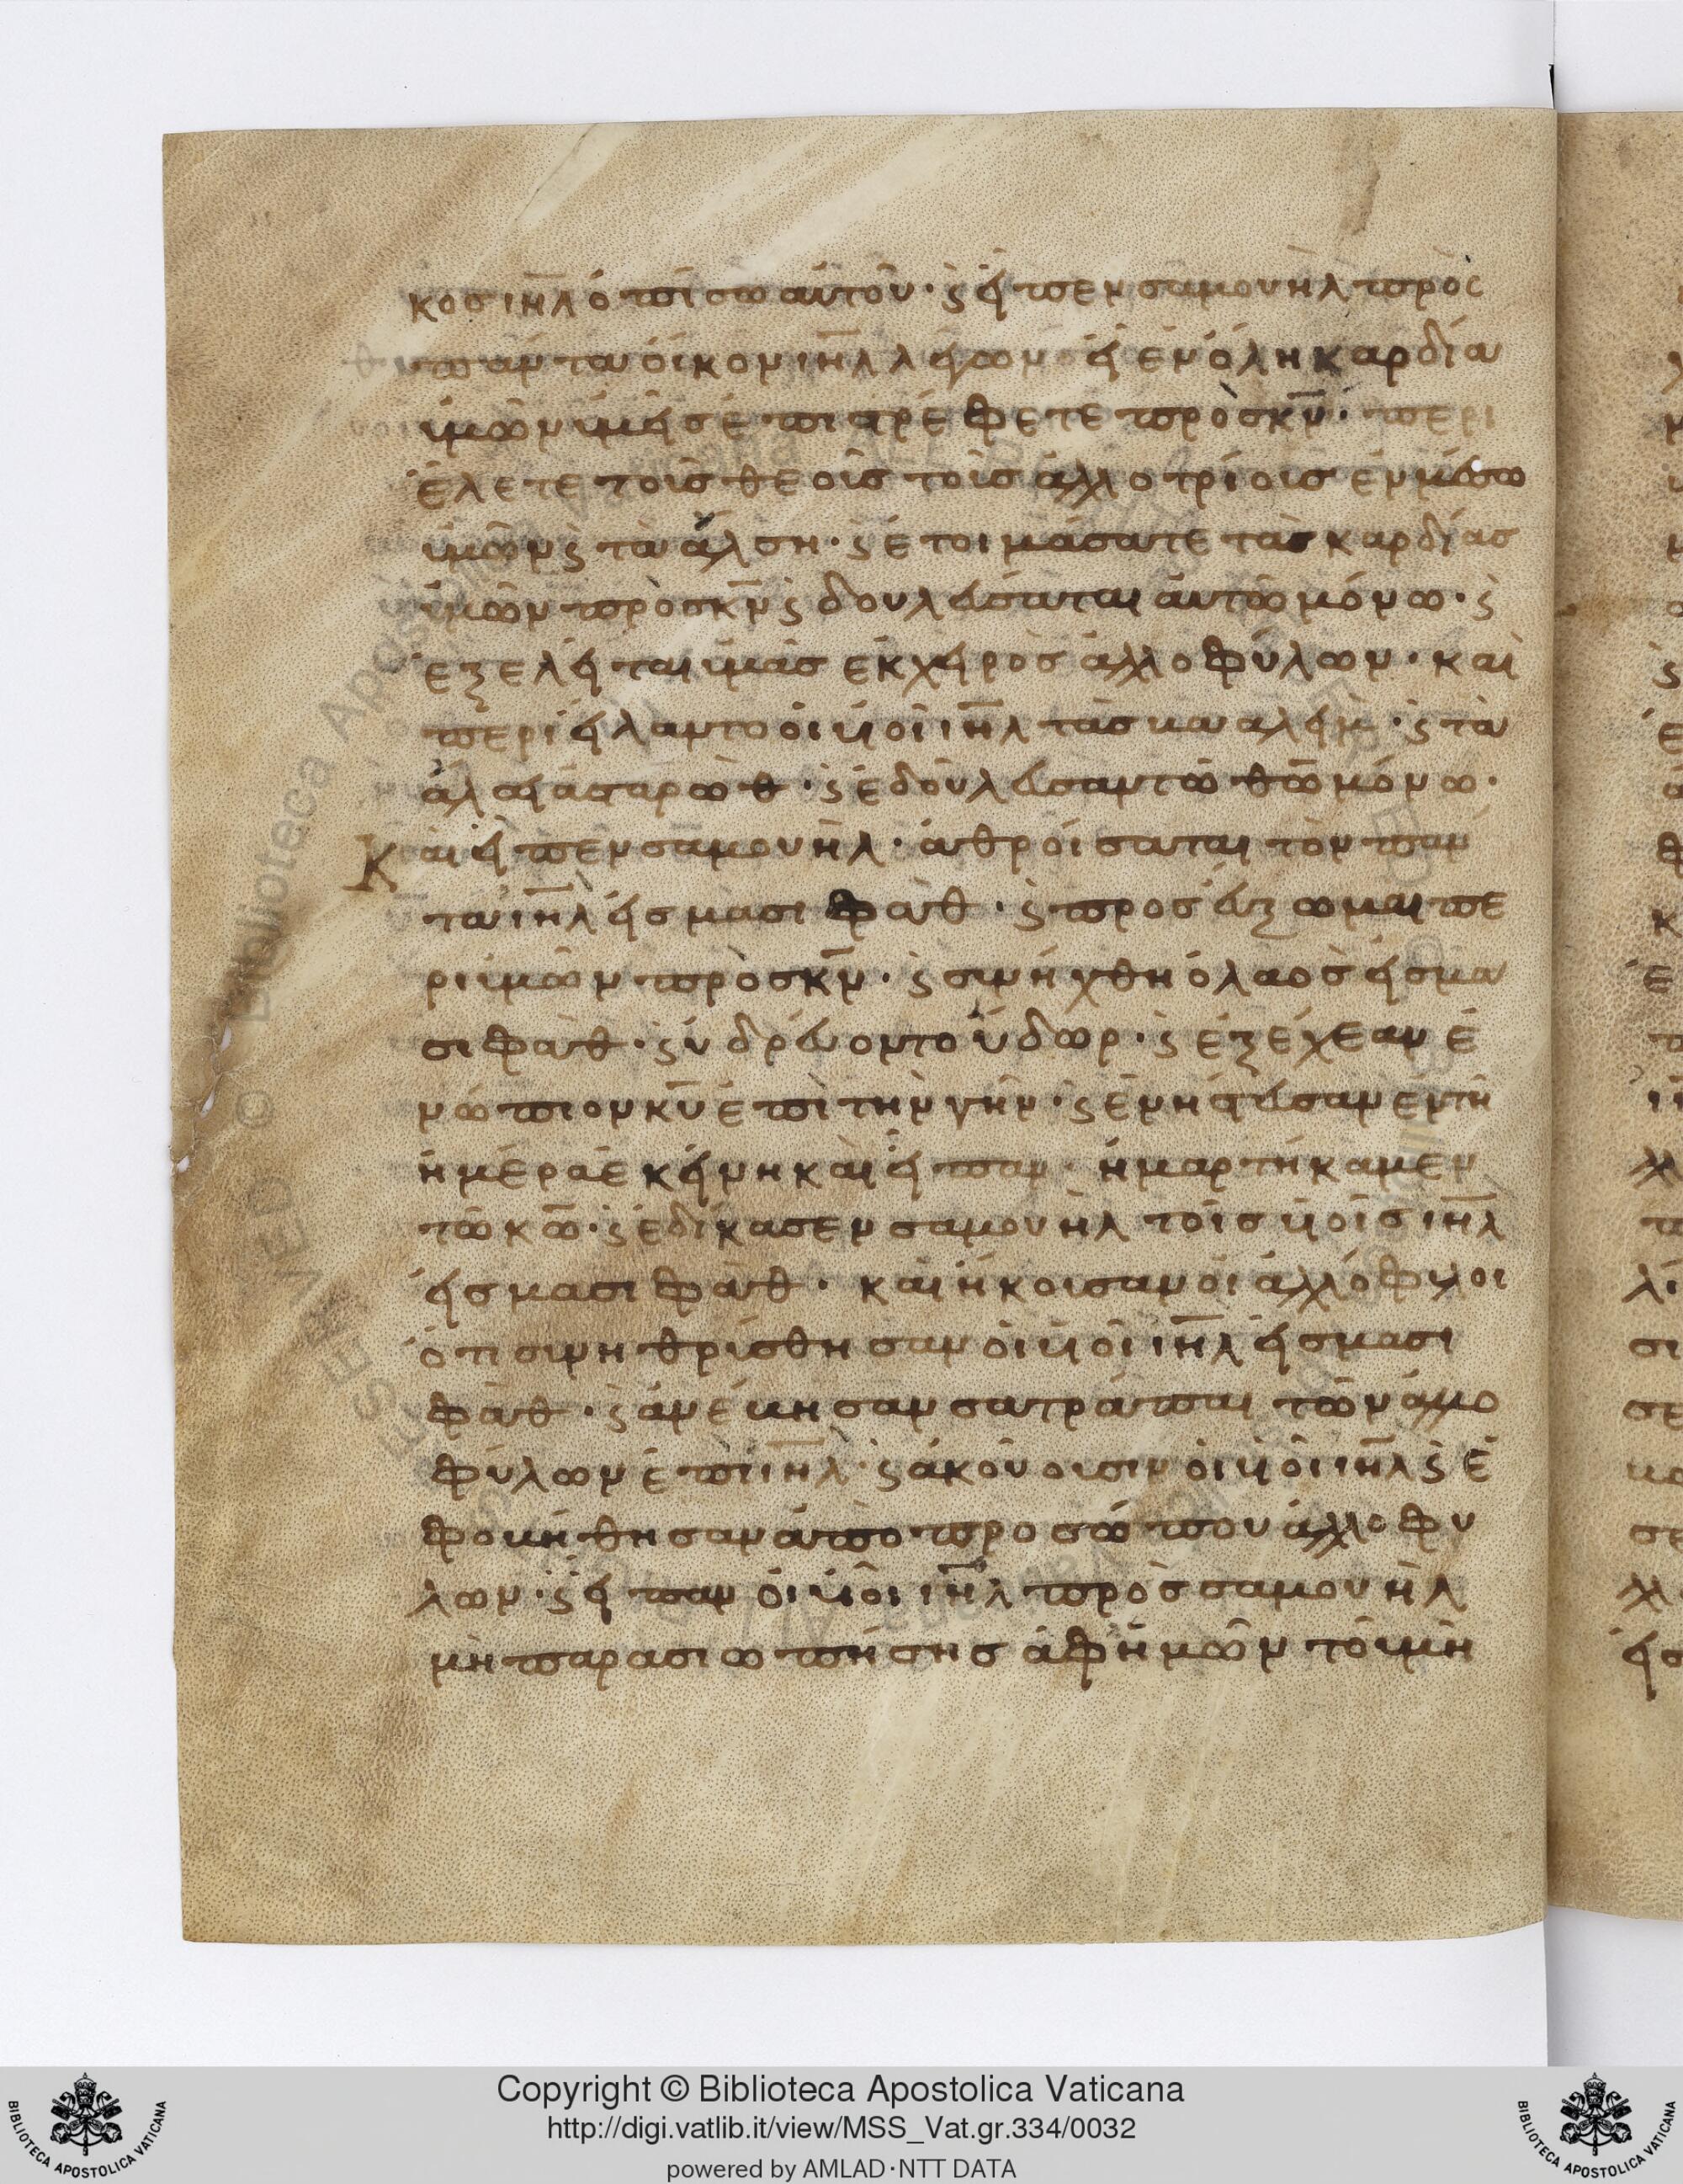 κοσ ιη̅λ ὀπίσω αὐτοῦ· ϛ̀ εἶπεν σαμουὴλ πρὸς
πάντα οἶκον ιη̅λ λέγων εἰ ἐν ὅλη καρδία
ὑμῶν ὑμεῖσ ἐπιστρέφετε πρὸσ κν̅· περι
έλετε τοῖσ θεοῖσ τοῖσ ἀλλοτρίοισ ἐν μέσω
ὑμῶν ϛ τὰ ἄλση· ϛ̀ ἑτοιμάσατε τὰσ καρδίασ
ὑμῶν πρὸσ κν̅ ϛ̀ δουλεύσαται αὐτῶ μόνω· ϛ̀
ἐξελεῖται ὑμᾶσ ἐκ χειρὸσ ἀλλοφύλων· καὶ
περιείλαντο οἱ υἱοὶ ιη̅λ τὰσ βααλείμ· ϛ̀ τὰ
ἄλση ἀσαρὼθ· ϛ̀ ἐδούλευσαν τῶ θω̅ μόνω·
Καὶ εἶπεν σαμουὴλ· ἀθροίσαται τὸν πάν
τα ιη̅λ εἰσ μασιφὰθ· ϛ̀ προσεύξωμαι πε
ρι ὑμῶν πρὸσ κν̅· ϛ̀ συνήχθη ὁ λαὸσ εἰσ μα
σιφὰθ· ϛ̀ ὑδρεύοντο ὕδωρ· ϛ̀ ἐξέχεαν ἐ
νώπιον κυ̅ ἐπὶ τὴν γῆν· ϛ̀ ἐνήστευσαν ἐν τῆ
ἡμέρα ἐκείνη καὶ εἶπαν· ἡμαρτήκαμεν
τῶ κω̅· ϛ̀ ἐδίκασεν σαμουὴλ τοῖσ υἱοῖσ ιη̅λ
εἰσ μασιφὰθ· καὶ ἤκουσαν οἱ ἀλλόφυλοι
ὅτι συνηθρίσθησαν οἱ υἱοὶ ιη̅λ εἰσ μασι
φὰθ· ϛ̀ ἀνέβησαν σατράπαι τῶν ἀλλο
φύλων ἐπὶ ιη̅λ· ϛ̀ ἀκούουσιν οἱ υἱοὶ ιη̅λ ϛ̀ ἐ
φοβήθησαν ἀπὸ προσώπου ἀλλοφύ
λων· ϛ̀ εἶπαν οἱ υἱοὶ ιη̅λ πρὸσ σαμουὴλ
μὴ παρασιωπήσησ ἀφ' ἡμῶν τοῦ μὴ
Copyright © Biblioteca Apostolica Vaticana
http://digi.vatlib.it/view/MSS_Vat.gr.334/0032
powered by AMLAD·NTT DATA
BIBLIOTECA APOSTOLICA VATICANA
BIBLIOTECA APOSTOLICA VATICANA